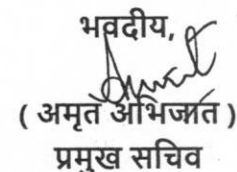 भवदीय,
( अमृत अभिजात )
प्रमुख सचिव